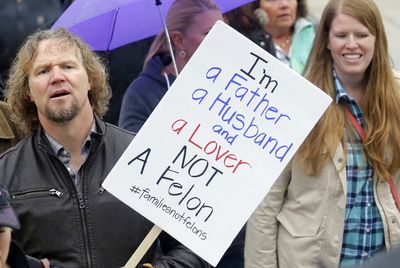 I'm
a Father
a Husband
and
a Lover
NOT
A Felon
#familiesnotfelons